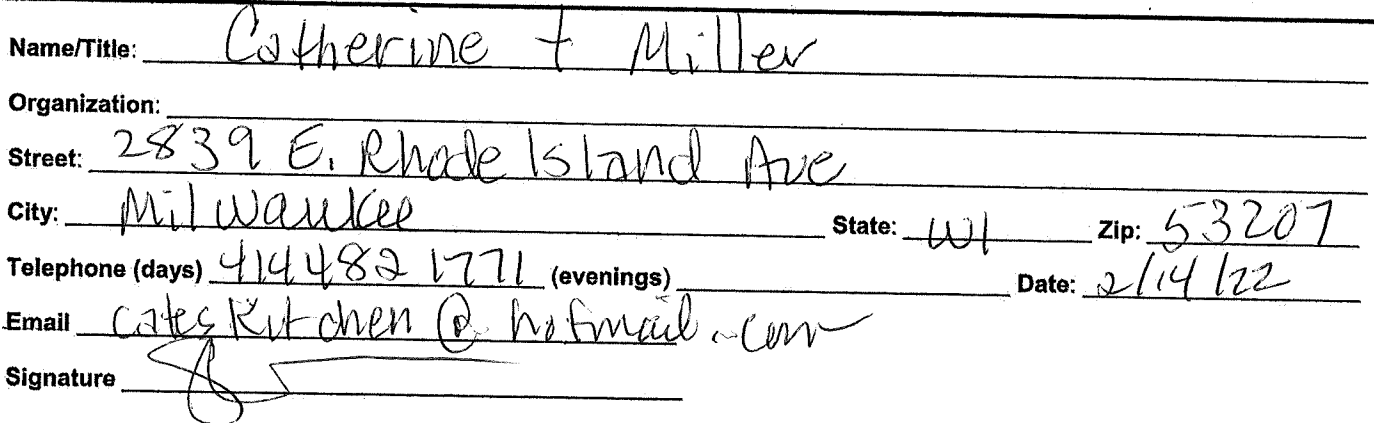 Name/Title: Catherine + Miller
Organization:
Street: 2839 E. Rhode Island Ave
City: Milwaukee State: WI Zip: 53207
Telephone (days) 414 482 1771 (evenings) Date: 2/14/22
Email cateskitchen@hotmail.com
Signature